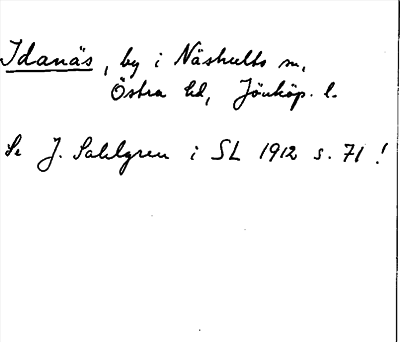 Idanäs, by i Näshults sn,
Östra hd, Jönköp. l.
Se J. Sahlgren i SL 1912 s. 71!